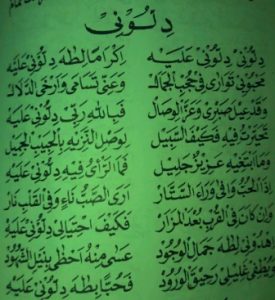 دِلُونِي
دِلُونِي دِلُونِي عَلَيْهِ إِكْرَامًا لِطٰهَ دِلُونِي عَلَيْهِ
مَحْبُوبِي تَوَارَى فِي حُجُبِ الْجَمَالْ وَعَنِّي تَسَامَى وَأَرْخَى الدَّلَالْ
وَقَدْ عِيلَ صَبْرِي وَعَزَّ الْوِصَالْ فَبِاللّٰهِ رَبِّي دِلُونِي عَلَيْهِ
تَحَيَّرْتُ فِيهِ فَكَيْفَ السَّبِيلْ لِوَصْلِ النَّزِيهِ بِالْحَبِيبِ الْجَمِيلْ
وَمَا أَبْتَغِيهِ عَزِيزٌ جَلِيلْ فَمَا الرَّأْيُ فِيهِ دِلُونِي عَلَيْهِ
لَاحَ الْحُبُّ وَافَى وَرَاءَ السِّتَارْ أَرَى الصَّبَّ نَاءٍ وَفِي الْقَلْبِ نَارْ
وَإِنْ كَانَ فِي الْقُرْبِ بُعْدُ الْمَزَارْ فَكَيْفَ احْتِيَالِي دِلُونِي عَلَيْهِ
هَدُونِي لِطٰهَ جَمَالِ الْوُجُودْ عَسَى مِنْهُ أَحْظَى بِنَيْلِ الشُّهُودْ
يُطْفِي غَلِيلِي رَحِيقُ الْوُرُودْ فَحُبًّا بِطٰهَ دِلُونِي عَلَيْهِ